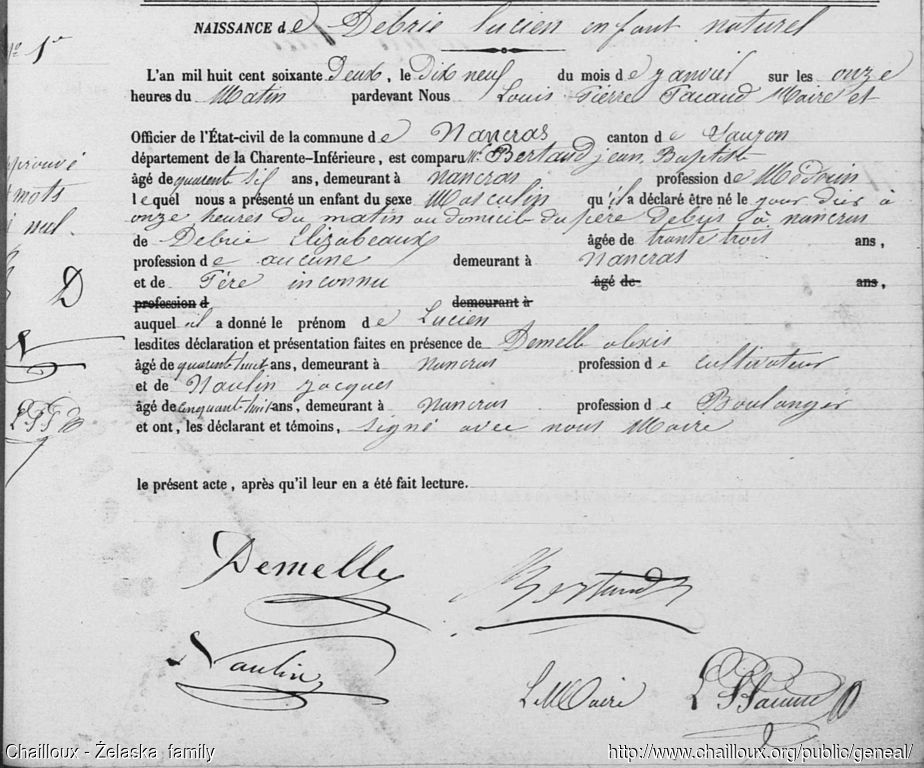 NAISSANCE de Debrie Lucien enfant naturel
N° 1er
L'an mil huit cent soixante Deux, le Dix neuf du mois de janvier sur les onze
heures du Matin pardevant Nous Louis Pierre Maire et
Officier de l'État-civil de la commune de Nancras canton de Saujon
département de la Charente-Inférieure, est comparu Mr Bertaud jean Baptiste
âgé de quarent sil ans, demeurant à nancras profession de Médecin
lequel nous a présenté un enfant du sexe Masculin qu'il a déclaré être né le jour à
onze heures du matin au domicile du père à nancras
de Debrie Elizabeaux âgée de trante trois ans,
profession de aucune demeurant à Nancras
et de Père inconnu âgé de ans,
profession d demeurant à
auquel il a donné le prénom de Lucien
lesdites déclaration et présentation faites en présence de Demelle alexis
âgé de quarent huit ans, demeurant à nancras profession de cultivateur
et de Naulin jacques
âgé de cinquante huit ans, demeurant à nancras profession de Boulanger
et ont, les déclarant et témoins, signé avec nous Maire
le présent acte, après qu'il leur en a été fait lecture.
mots
nul.
D
Demelle Bertaud
Naulin
Le Maire
Chailloux - Želaska family http://www.chailloux.org/public/geneal/